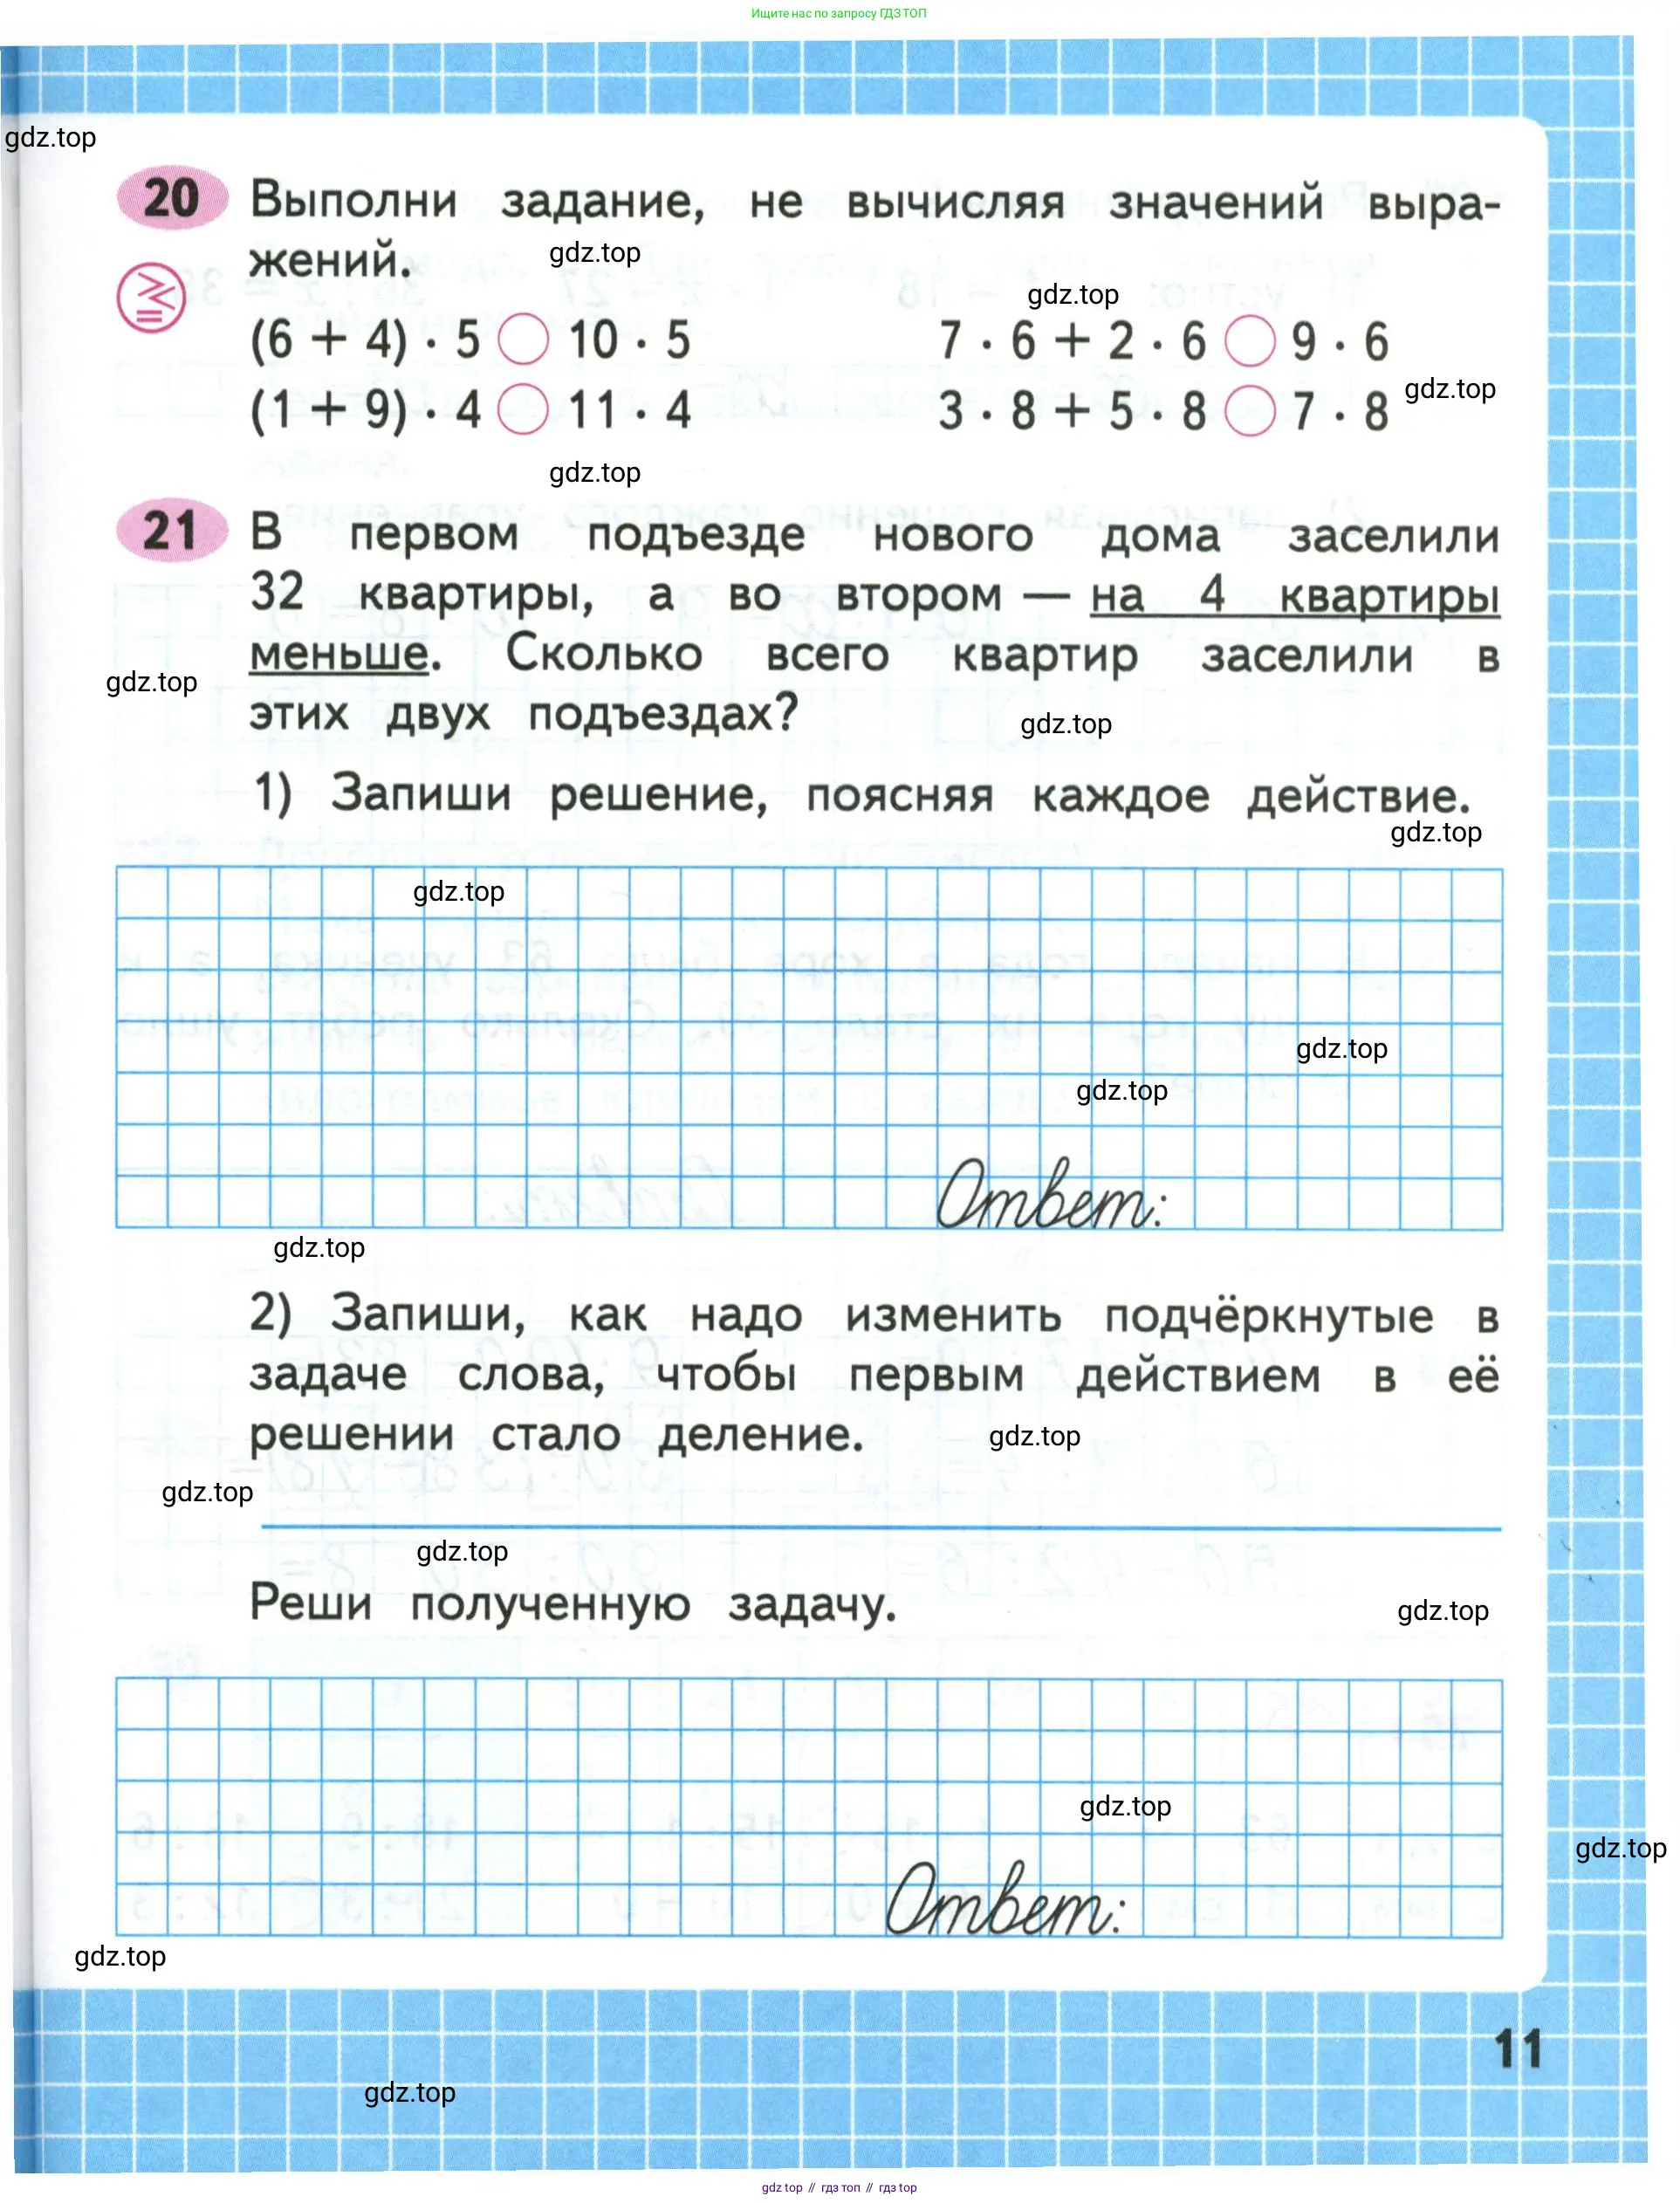 Ищите нас по запросу ГДЗ ТОП
gdz.top
20 Выполни задание, не вычисляя значений выра-
жений.
gdz.top
gdz.top
(6 + 4) · 5 10 · 5 7 · 6 + 2 · 6 9 · 6
gdz.top
(1 + 9) · 4 11 · 4 3 · 8 + 5 · 8 7 · 8
gdz.top
21 В первом подъезде нового дома заселили
32 квартиры, а во втором — на 4 квартиры
меньше. Сколько всего квартир заселили в
gdz.top
этих двух подъездах?
gdz.top
1) Запиши решение, поясняя каждое действие.
gdz.top
gdz.top
gdz.top
gdz.top
Ответ:
gdz.top
2) Запиши, как надо изменить подчёркнутые в
задаче слова, чтобы первым действием в её
решении стало деление.
gdz.top
gdz.top
gdz.top
Реши полученную задачу.
gdz.top
gdz.top
gdz.top
Ответ:
gdz.top
11
gdz.top
gdz top // гдз топ // гдз top